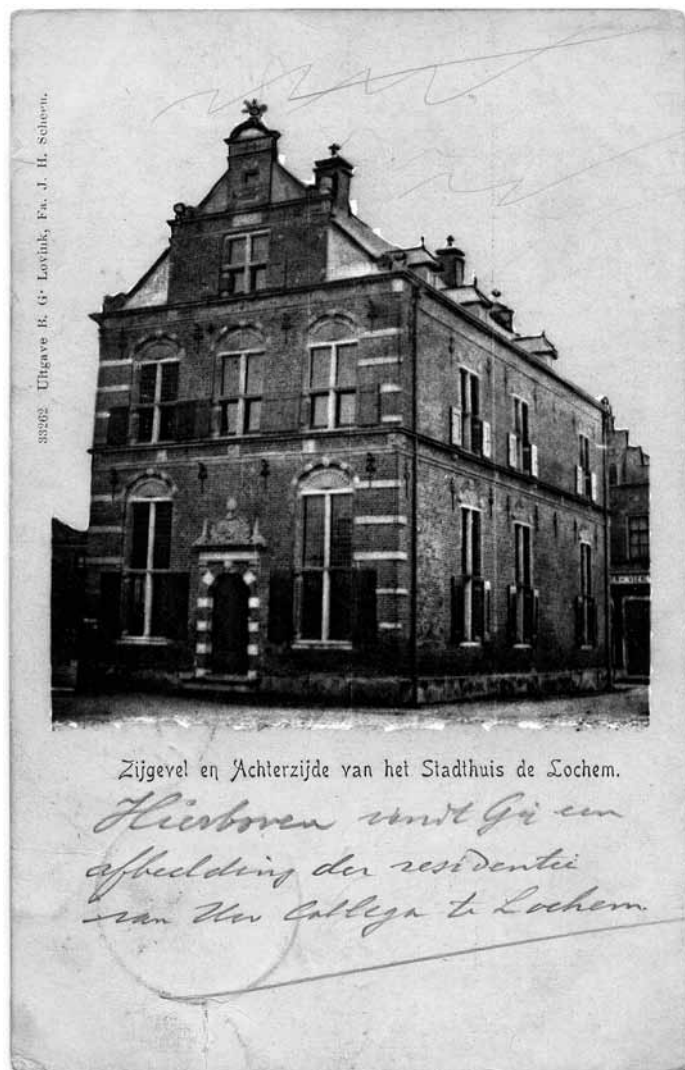 33262 Uitgave B. G. Lovink, Fa. J. H. Scheen.
Zijgevel en Achterzijde van het Stadthuis de Lochem.
Hierboven vindt Gij een
afbeelding der residentie
van Uw Collega te Lochem